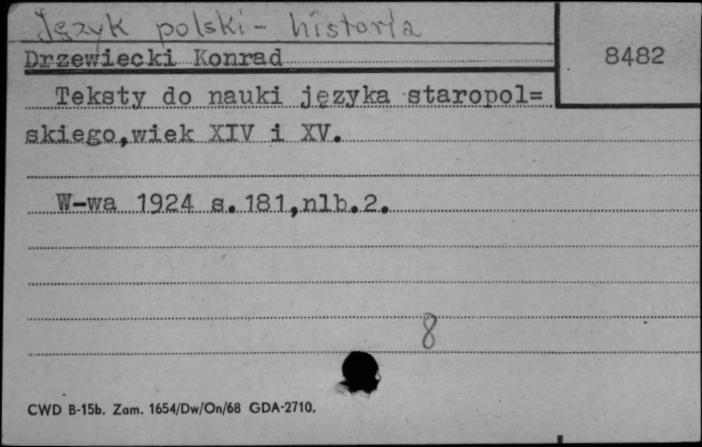 Język polski - historia
Drzewiecki Konrad
8482
Teksty do nauki języka staropol=
skiego,wiek XIV i XV.
W-wa 1924 s.181,nlb.2.
8
CWD B-15b. Zam. 1654/Dw/On/68 GDA-2710.